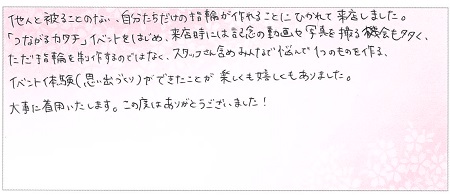 他人と被ることのない、自分たちだけの指輪が作れることにひかれて来店しました。
「つながるカタチ」イベントをはじめ、来店時には記念の動画や写真を撮る機会も多く、
ただ指輪を制作するのではなく、スタッフさん含めみんなで悩んで1つのものを作る、
イベント体験(思い出づくり)ができたことが楽しくも嬉しくもありました。
大事に着用いたします。この度はありがとうございました!